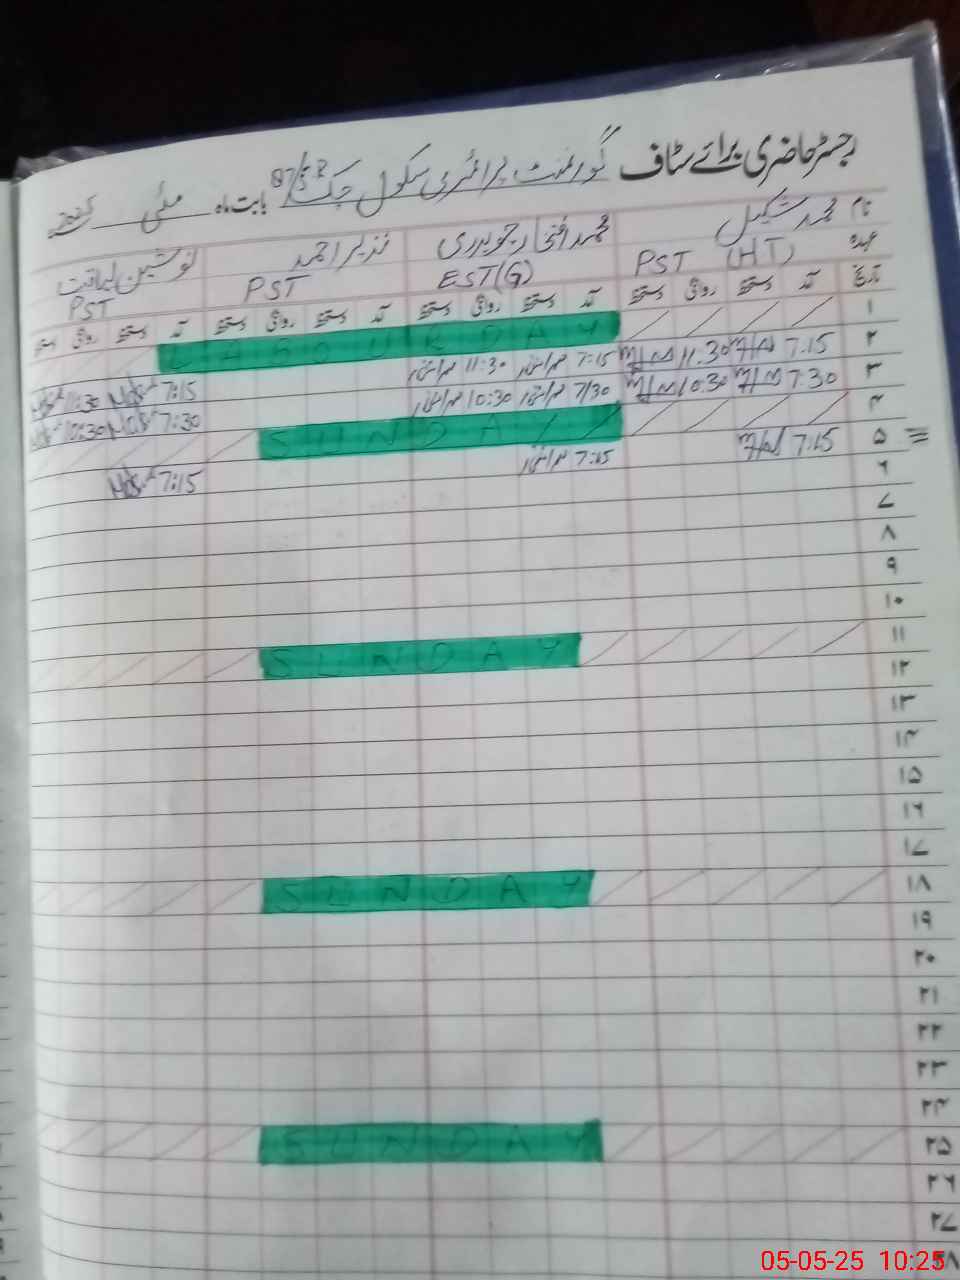 رجسٹر حاضری برائے سٹاف گورنمنٹ پرائمری سکول چک 87 بابت ماہ مئی 2025
نام محمد شکیل محمد افتخار چوہدری نذیر احمد نوشین لیاقت
عہدہ PST (HT) EST(G) PST PST
تاریخ آمد دستخط روانگی دستخط آمد دستخط روانگی دستخط آمد دستخط روانگی دستخط آمد دستخط روانگی دستخط
۱ LABOUR DAY
۲ 7:15 11:30 7:15 11:30 7:15 11:30
۳ 7:30 10:30 7:30 10:30 7:30 10:30
۴ SUNDAY
۵ 7:15 7:15 7:15
۶
۷
۸
۹
۱۰
۱۱ SUNDAY
۱۲
۱۳
۱۴
۱۵
۱۶
۱۷
۱۸ SUNDAY
۱۹
۲۰
۲۱
۲۲
۲۳
۲۴
۲۵ SUNDAY
۲۶
۲۷
۲۸
05-05-25 10:25